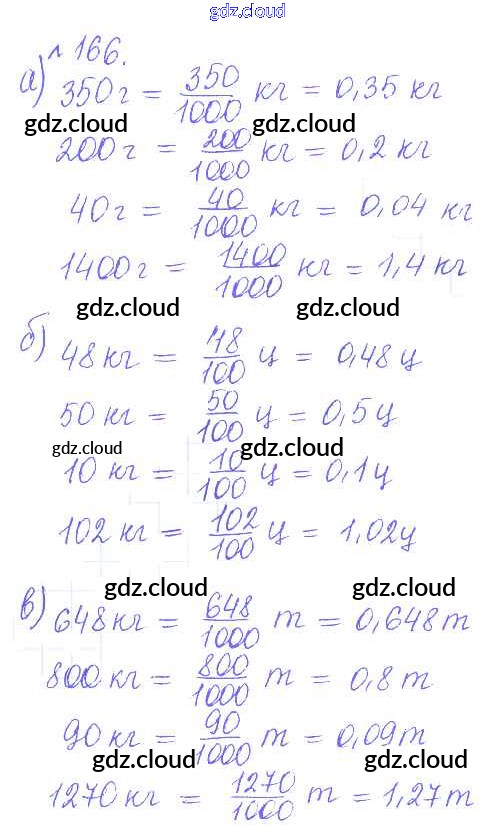 gdz.cloud
№ 166.
а) 350 г = 350/1000 кг = 0,35 кг
gdz.cloud gdz.cloud
200 г = 200/1000 кг = 0,2 кг
40 г = 40/1000 кг = 0,04 кг
1400 г = 1400/1000 кг = 1,4 кг
gdz.cloud gdz.cloud
б) 48 кг = 48/100 ц = 0,48 ц
50 кг = 50/100 ц = 0,5 ц
gdz.cloud gdz.cloud
10 кг = 10/100 ц = 0,1 ц
102 кг = 102/100 ц = 1,02 ц
gdz.cloud gdz.cloud
в) 648 кг = 648/1000 т = 0,648 т
800 кг = 800/1000 т = 0,8 т
90 кг = 90/1000 т = 0,09 т
gdz.cloud gdz.cloud
1270 кг = 1270/1000 т = 1,27 т